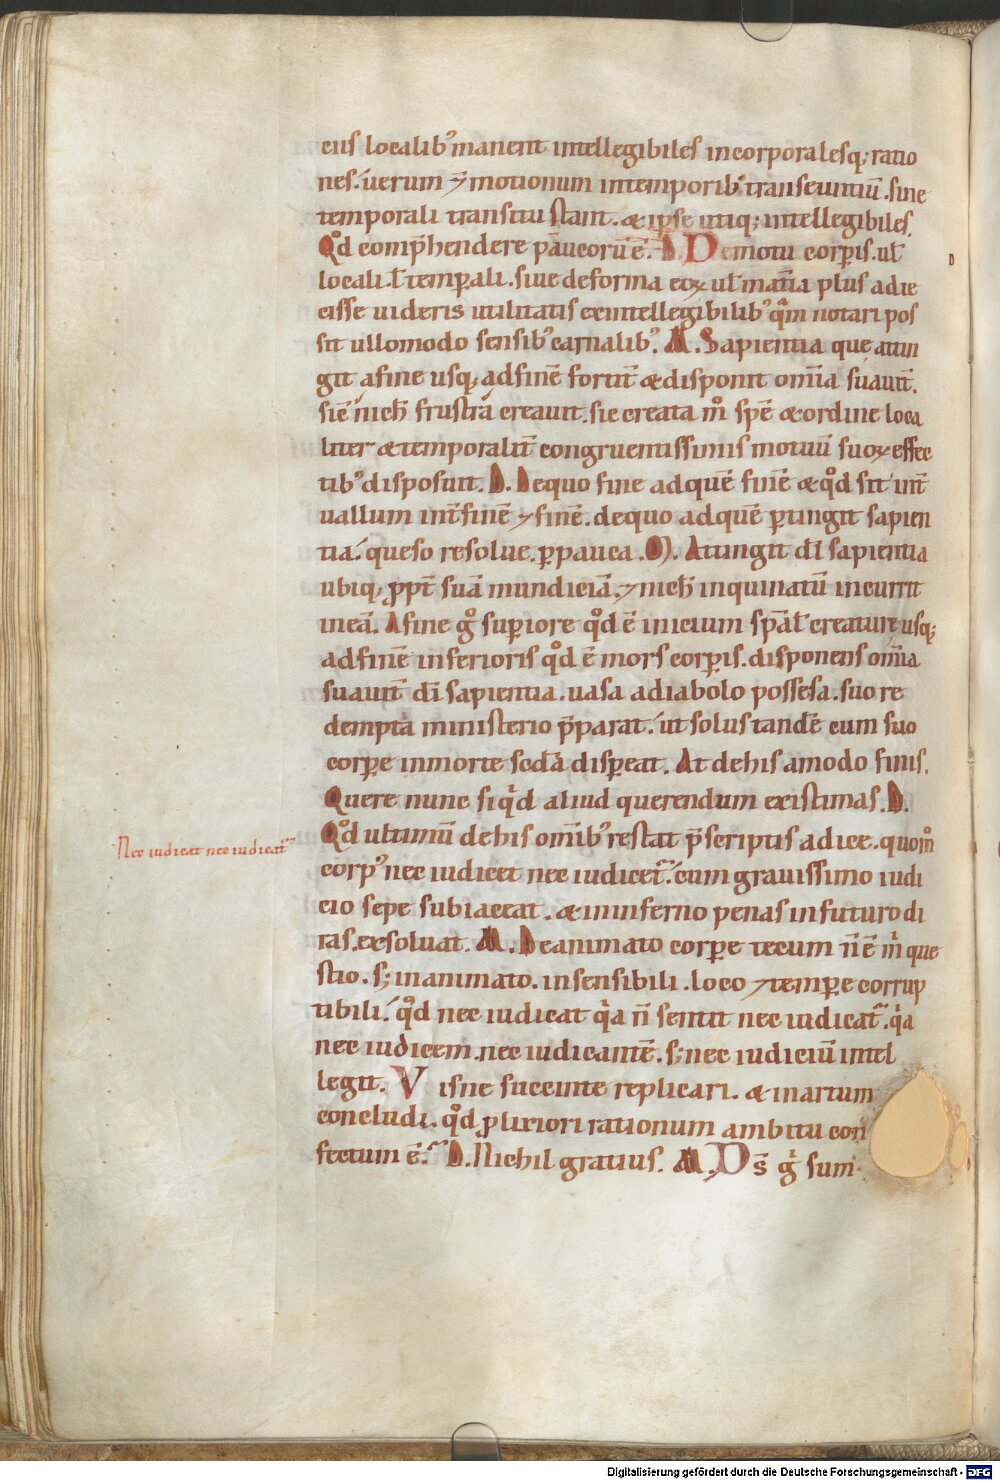 eius localib᾽ manent intellegibiles incorporalesq; ratio
nes. uerum ⁊ motionum intemporib᾽ transeuntiū. sine
temporali transitu stant. & ipse utiq; intellegibiles.
Qd̊ comp̄hendere paucorū ē. D. De motu corꝑis. ul̄
locali. l̄ temꝑali. siue de forma eoꝝ ul̄ mat̄ia plus adie
cisse uideris utilitatis ex intellegibilib᾽ qm̄ notari pos
sit ullomodo sensib᾽ carnalib᾽. M. Sapientia que attin
git a fine usq; ad finē fortit̄ & disponit om̄ia suauit̄.
sic nich̄ frustra creauit. sic creata m̊ spē & ordine loca
liter & temporalit̄ congruentissimis motuū suoꝝ effec
tib᾽ disposuit. D. De quo fine ad quē finē & qd̊ sit int̄
uallum int̄ finē ⁊ finē. de quo ad quē ꝑtingit sapien
tia. queso resolue. ꝑ pauca. M. Attingit dī sapientia
ubiq; ꝓpt̄ suā mundiciā. ⁊ nich̄ inquinatū incurrit
in eā. A fine g̊ suꝑiore qd̊ ē inicium sp̄al̄ creature usq;
ad finē inferioris qd̊ ē mors corꝑis. disponens om̄ia
suauit̄ dī sapientia. uasa a diabolo possesa. suo re
dempta ministerio p̄parat. ut solus tandē cum suo
corꝑe in morte scd̄a disꝑeat. At de his amodo finis.
Quere nunc si qͥd aliud querendum existimas. D.
Qd̊ ultimū de his om̄ib᾽ restat p̄scriptis adice. quom̊
corp᾽ nec iudicet nec iudicet᷑. cum grauissimo iudi
cio sepe subiaceat. & in inferno penas in futuro di
ras exsoluat. M. De animato corꝑe tecum n̄ ē m̄ que
stio. s; inanimato. insensibili. loco ⁊ temꝑe corrup
tibili. qd̊ nec iudicat qͥa n̄ sentit nec iudicat᷑. qͥa
nec iudicem. nec iudicantē. s; nec iudiciū intel
legit. Visne succincte replicari. & in artum
concludi. qd̊ ꝓlixiori rationum ambitu con
fectum ē. D. Nichil gratius. M. Ds̄ gͥ sum
Nec iudicat nec iudicat᷑
D
Digitalisierung gefördert durch die Deutsche Forschungsgemeinschaft - DFG